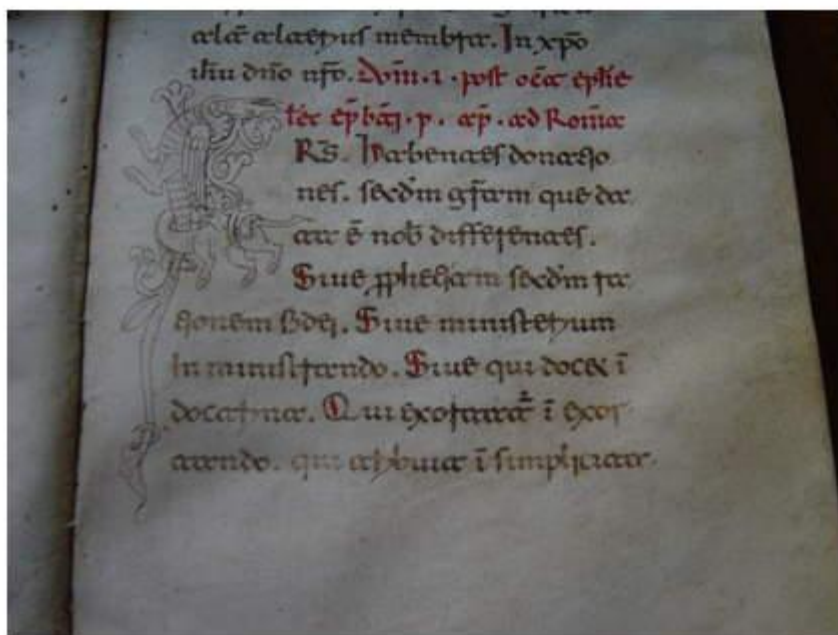 alt̄ alterius membra. In xp̄o
ih̄u dn̄o nr̄o. Dom̄. i. post oct̄a ephīe
lēc ep̄ b̄ati. p. ap̄. ad Rom̄a
R̄s. Habentes donatio
nes. secdm̄ gr̄am que da
ta ē nob̄ differentes.
Siue pphetiam secdm̄ ra
tionem fidei. Siue ministerium
In ministrando. Siue qui docet ī
doctrina. Qui exortatur ī exor
tando. qui tribuit ī simplicitate.